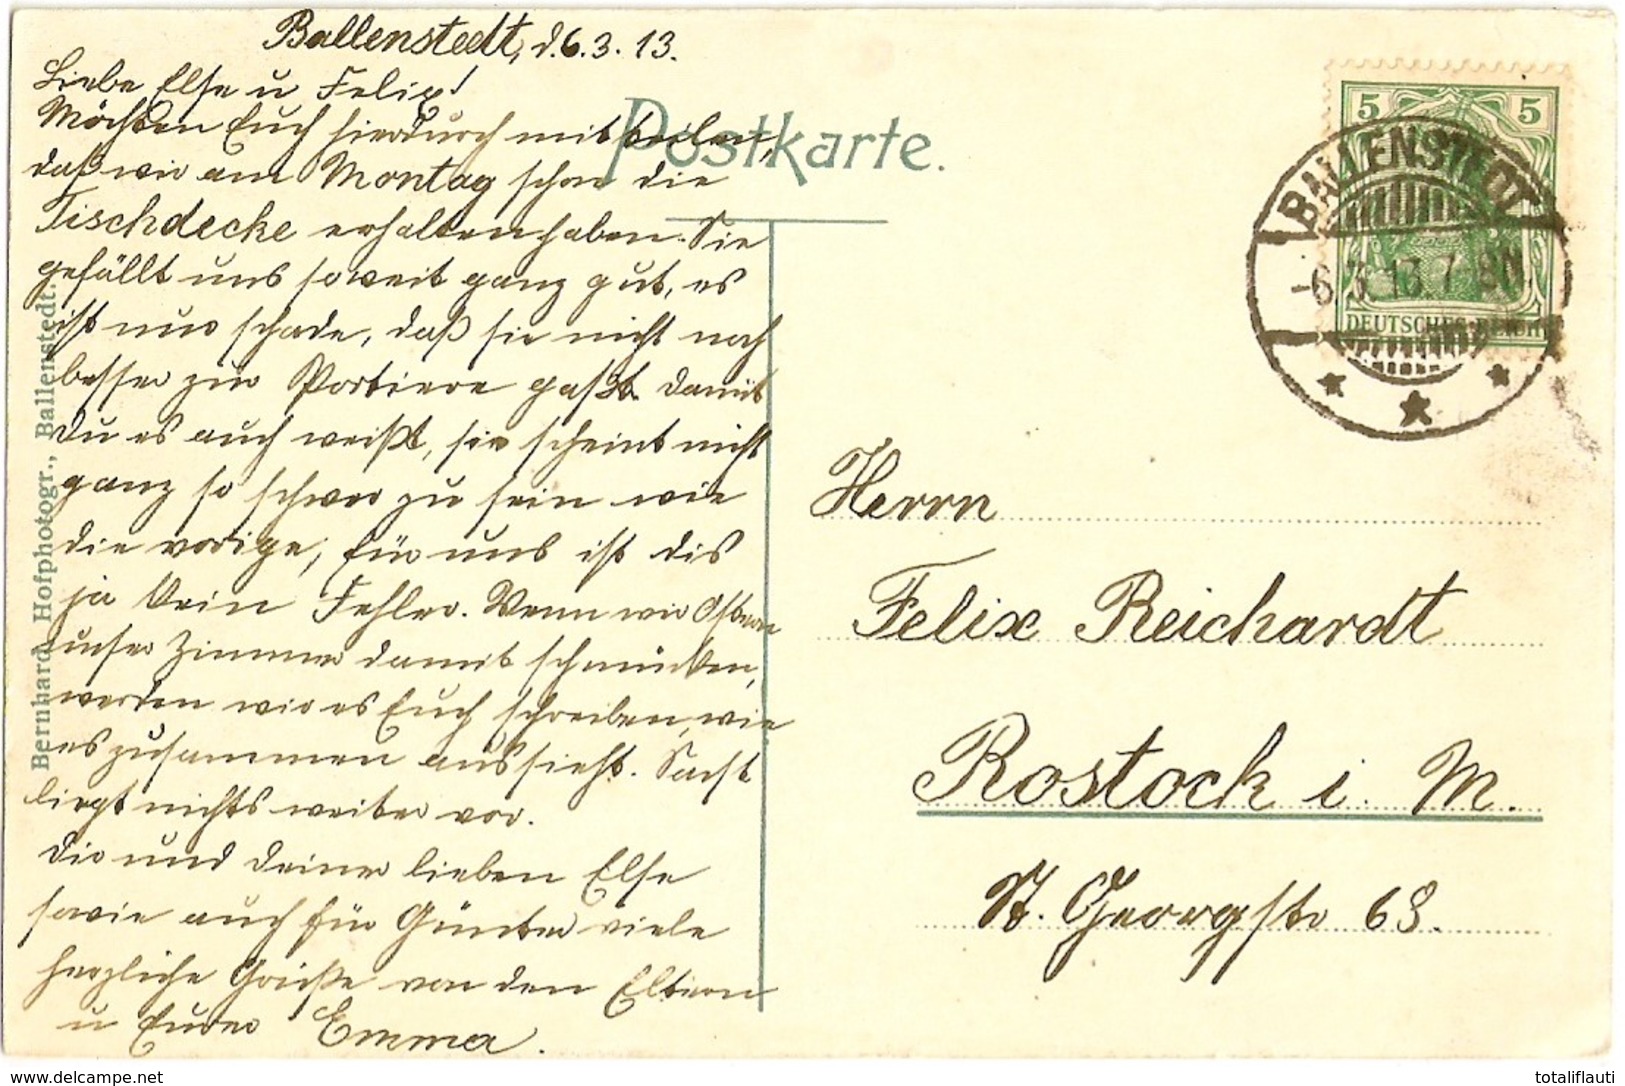 Ballenstedt, d. 6.3.13.
Liebe Else u Felix!
Möchten Euch hierdurch mitteilen,
daß wir am Montag schon die
Tischdecke erhalten haben. Sie
gefällt uns soweit ganz gut, es
ist nur schade, daß sie nicht noch
besser zur Portiere paßt. Damit
Du es auch weißt, sie scheint nicht
ganz so schwer zu sein wie
die vorige, für uns ist dis
ja kein Fehler. Wenn wir Ostern
unser Zimmer damit schmücken,
werden wir es Euch schreiben, wie
es zusammen aussieht. Sonst
liegt nichts weiter vor.
Dir und Deiner lieben Else
sowie auch für Günter viele
herzliche Grüße von den Eltern
u Eurer Emma.
Postkarte.
Bernhard, Hofphotogr., Ballenstedt.
5 5
DEUTSCHES REICH
BALLENSTEDT
-6.3.13. 7-8N
Herrn
Felix Reichardt
Rostock i. M.
St. Georgstr 63.
totaliflauti
www.delcampe.net